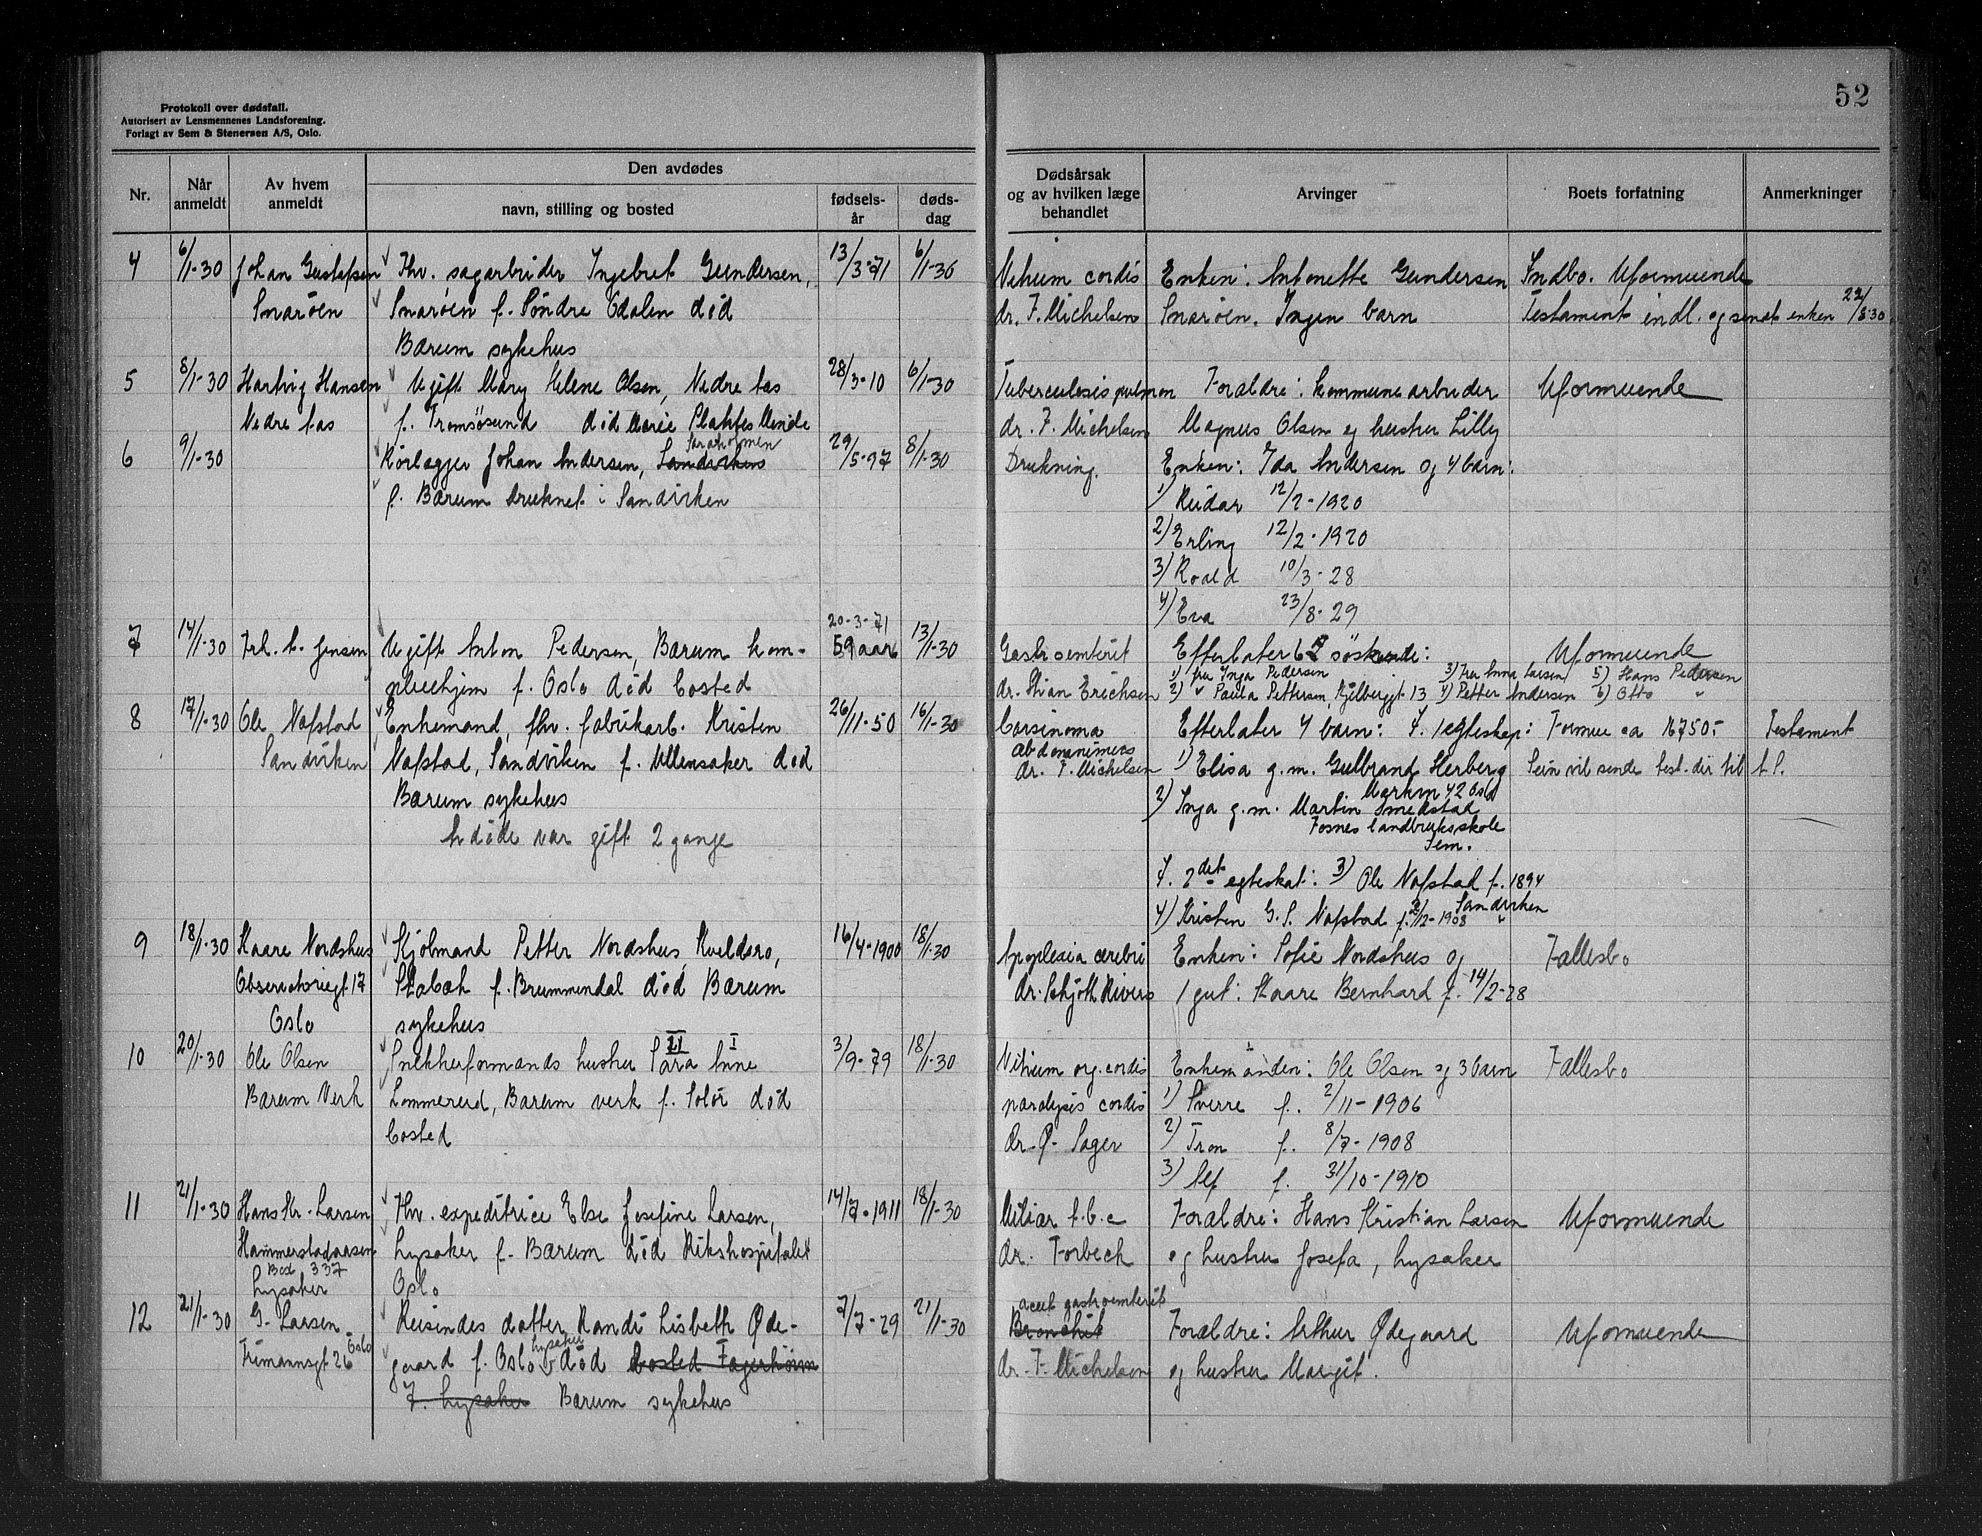 Protokoll over dødsfall.
Autorisert av Lensmennenes Landsforening.
Forlagt av Sem & Stenersen A/S, Oslo.
Nr.
Når anmeldt
Av hvem anmeldt
Den avdødes
navn, stilling og bosted
fødsels-år
døds-dag
4 6/1-30 Johan Gustafsen Fhv. sagarbeider Ingebret Gundersen, 13/3-71 6/1-30
Snarøen Snarøen f. Søndre Odalen død
Bærum sykehus
5 8/1-30 Hartvig Hansen Ugift Mary Helene Olsen, Nedre Aas 28/3-10 6/1-30
Nedre Aas f. Tromsøsund død Marie Plathes Minde
6 9/1-30 Rørlægger Johan Andersen, Sandviken 29/5-97 8/1-30
f. Bærum druknet i Sandviken
20-3-71
7 14/1-30 Frk. C. Jensen Ugift Anton Pedersen, Bærum kom- 59 aar 13/1-30
pleiehjem f. Oslo død bosted
8 17/1-30 Ole Nafstad Enkemand, fhv. fabrikarb. Kristen 26/11-50 16/1-30
Sandviken Nafstad, Sandviken f. Ullensaker død
Bærum sykehus
Avdøde var gift 2 gange
9 18/1-30 Kaare Nordshus Skjølmand Petter Nordshus Kveldsro, 16/4-1900 18/1-30
Observatoriegt 17 Stabæk f. Brummundal død Bærum
Oslo sykehus
10 20/1-30 Ole Olsen Snekkerformands hustru Sara II Anne I 3/9-79 18/1-30
Bærum Verk Lommerud, Bærum verk f. Solør død
bosted
11 21/1-30 Hans Kr. Larsen Fhv. expeditrice Else Josefine Larsen, 14/7-1911 18/1-30
Hammerstadaasen Lysaker f. Bærum død Rikshospitalet
Box 337
Lysaker Oslo
12 21/1-30 G. Larsen Reisendes datter Randi Lisbeth Øde- 7/7-29 21/1-30
Oslo
Frimannsgt 26 gaard f. Oslo Lysaker død bosted Fagerheim
7. Lysaker Bærum sykehus
52
Dødsårsak
og av hvilken læge
behandlet
Arvinger
Boets forfatning
Anmerkninger
Vitium cordis Enken: Antonette Gundersen Indbo. Uformuende
dr. F. Michelsen Snarøen. Ingen barn Testament indl. og sendt enken 22/5 30
Tuberculosis pulmon Forældre: kommunearbeider Uformuende
dr. F. Michelsen Magnus Olsen og hustru Lilly
Drukning. Enken: Ida Andersen og 4 barn:
1) Reidar 12/2-1920
2) Erling 12/2-1920
3) Roald 10/3-28
4) Eva 23/8-29
Gastroenterit Efterlater 6 søskende: Uformuende
1) fru Inga Pedersen 3) Fru Anna Larsen 5) Hans Pedersen
dr. Stian Erichsen 2) " Paula Pettersen, Kjelbergt 13 4) Petter Andersen 6) Otto "
Carsinoma Efterlater 4 barn: I. 1 egteskap: Formue ca 16750,- Testament
abdominimeis
dr. F. Michelsen 1) Elisa g.m. Gulbrand Herberg Sein vil sende test. dir til t.S.
Markvn 42 Oslo
2) Inga g.m. Martin Smedstad
Fosnes landbruksskole
Sem.
I. 2det egteskap: 3) Ole Nafstad f. 1894
Sandviken
4) Kristen G. S. Nafstad f. 2/12-1908 "
Apoplexia cerebri Enken: Sofie Nordshus og Fallesbo
dr. Schjøth Rivers 1 gut: Kaare Bernhard f. 14/2-28
Vitium org. cordis Enkemanden: Ole Olsen og 3 barn Fallesbo
paralysis cordis 1) Sverre f. 2/11-1906
dr. Ø. Sager 2) Tron f. 8/7-1908
3) Alf f. 31/10-1910
Miliær t.b.c Forældre: Hans Kristian Larsen Uformuende
dr. Torbeck og hustru Josefa, Lysaker
acut gastroenterit
Bronchit Forældre: Arthur Ødegaard Uformuende
dr. F. Michelsen og hustru Margit.